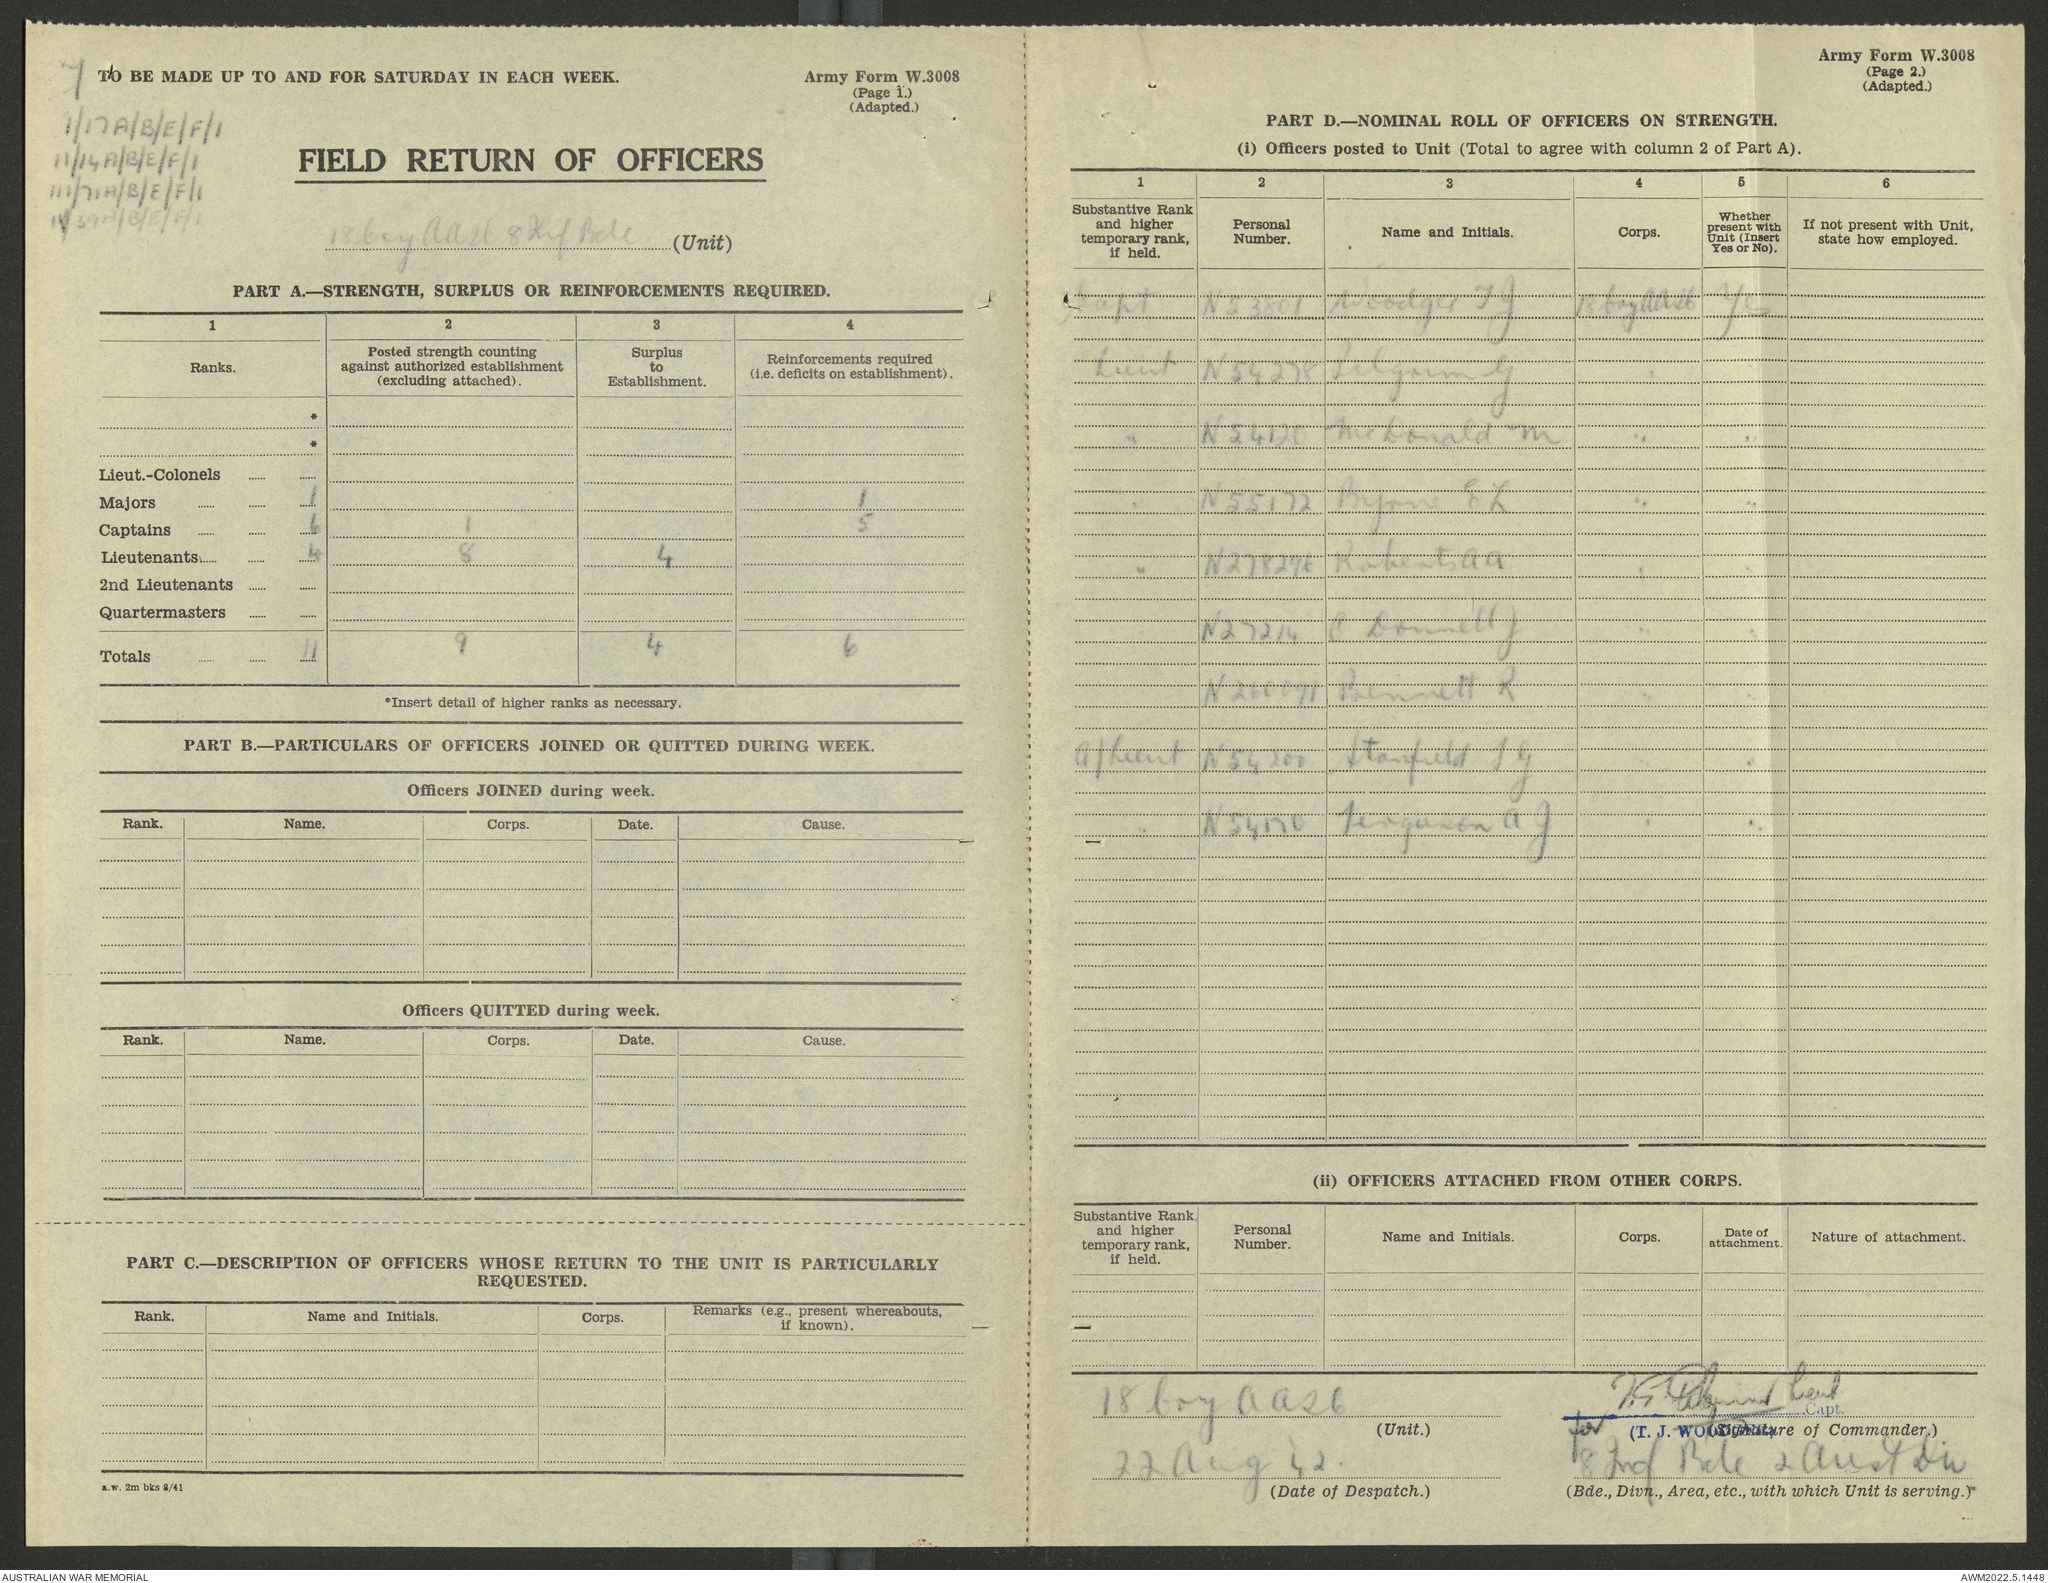 TO BE MADE UP TO AND FOR SATURDAY IN EACH WEEK.
Army Form W.3008
(Page 1.)
(Adapted.)
7
1/17A/B/E/F/1
11/14A/B/E/F/1
111/71A/B/E/F/1
IV/39A/B/E/F/1
FIELD RETURN OF OFFICERS
18 Coy AASC 8 Inf Bde (Unit)
PART A.—STRENGTH, SURPLUS OR REINFORCEMENTS REQUIRED.
1 2 3 4
Ranks. Posted strength counting against authorized establishment (excluding attached). Surplus to Establishment. Reinforcements required (i.e. deficits on establishment).
*
*
Lieut.-Colonels
Majors 1 1
Captains 6 1 5
Lieutenants 4 8 4
2nd Lieutenants
Quartermasters
Totals 11 9 4 6
*Insert detail of higher ranks as necessary.
PART B.—PARTICULARS OF OFFICERS JOINED OR QUITTED DURING WEEK.
Officers JOINED during week.
Rank. Name. Corps. Date. Cause.
Officers QUITTED during week.
Rank. Name. Corps. Date. Cause.
PART C.—DESCRIPTION OF OFFICERS WHOSE RETURN TO THE UNIT IS PARTICULARLY
REQUESTED.
Rank. Name and Initials. Corps. Remarks (e.g., present whereabouts, if known).
a.w. 2m bks 8/41
Army Form W.3008
(Page 2.)
(Adapted.)
PART D.—NOMINAL ROLL OF OFFICERS ON STRENGTH.
(i) Officers posted to Unit (Total to agree with column 2 of Part A).
1 2 3 4 5 6
Substantive Rank and higher temporary rank, if held. Personal Number. Name and Initials. Corps. Whether present with Unit (Insert Yes or No). If not present with Unit, state how employed.
Capt N53801 Woodger T J 18 Coy AASC Yes
Lieut N54278 Pilgrim G "
" N54120 McDonald M " "
" N55172 Byrne E L " "
" N278296 Roberts A A " "
N27214 O Donnell J " "
N260091 Bennett R " "
A/Lieut N54200 Stanfield J G " "
" N54170 Ferguson A J " "
(ii) OFFICERS ATTACHED FROM OTHER CORPS.
Substantive Rank and higher temporary rank, if held. Personal Number. Name and Initials. Corps. Date of attachment. Nature of attachment.
18 Coy AASC
(Unit.)
22 Aug 42.
(Date of Despatch.)
Lieut
Capt.
for (T. J. WOODGER)
(Signature of Commander.)
8 Inf Bde 2 Aust Div
(Bde., Divn., Area, etc., with which Unit is serving.)
AUSTRALIAN WAR MEMORIAL
AWM2022.5.1448